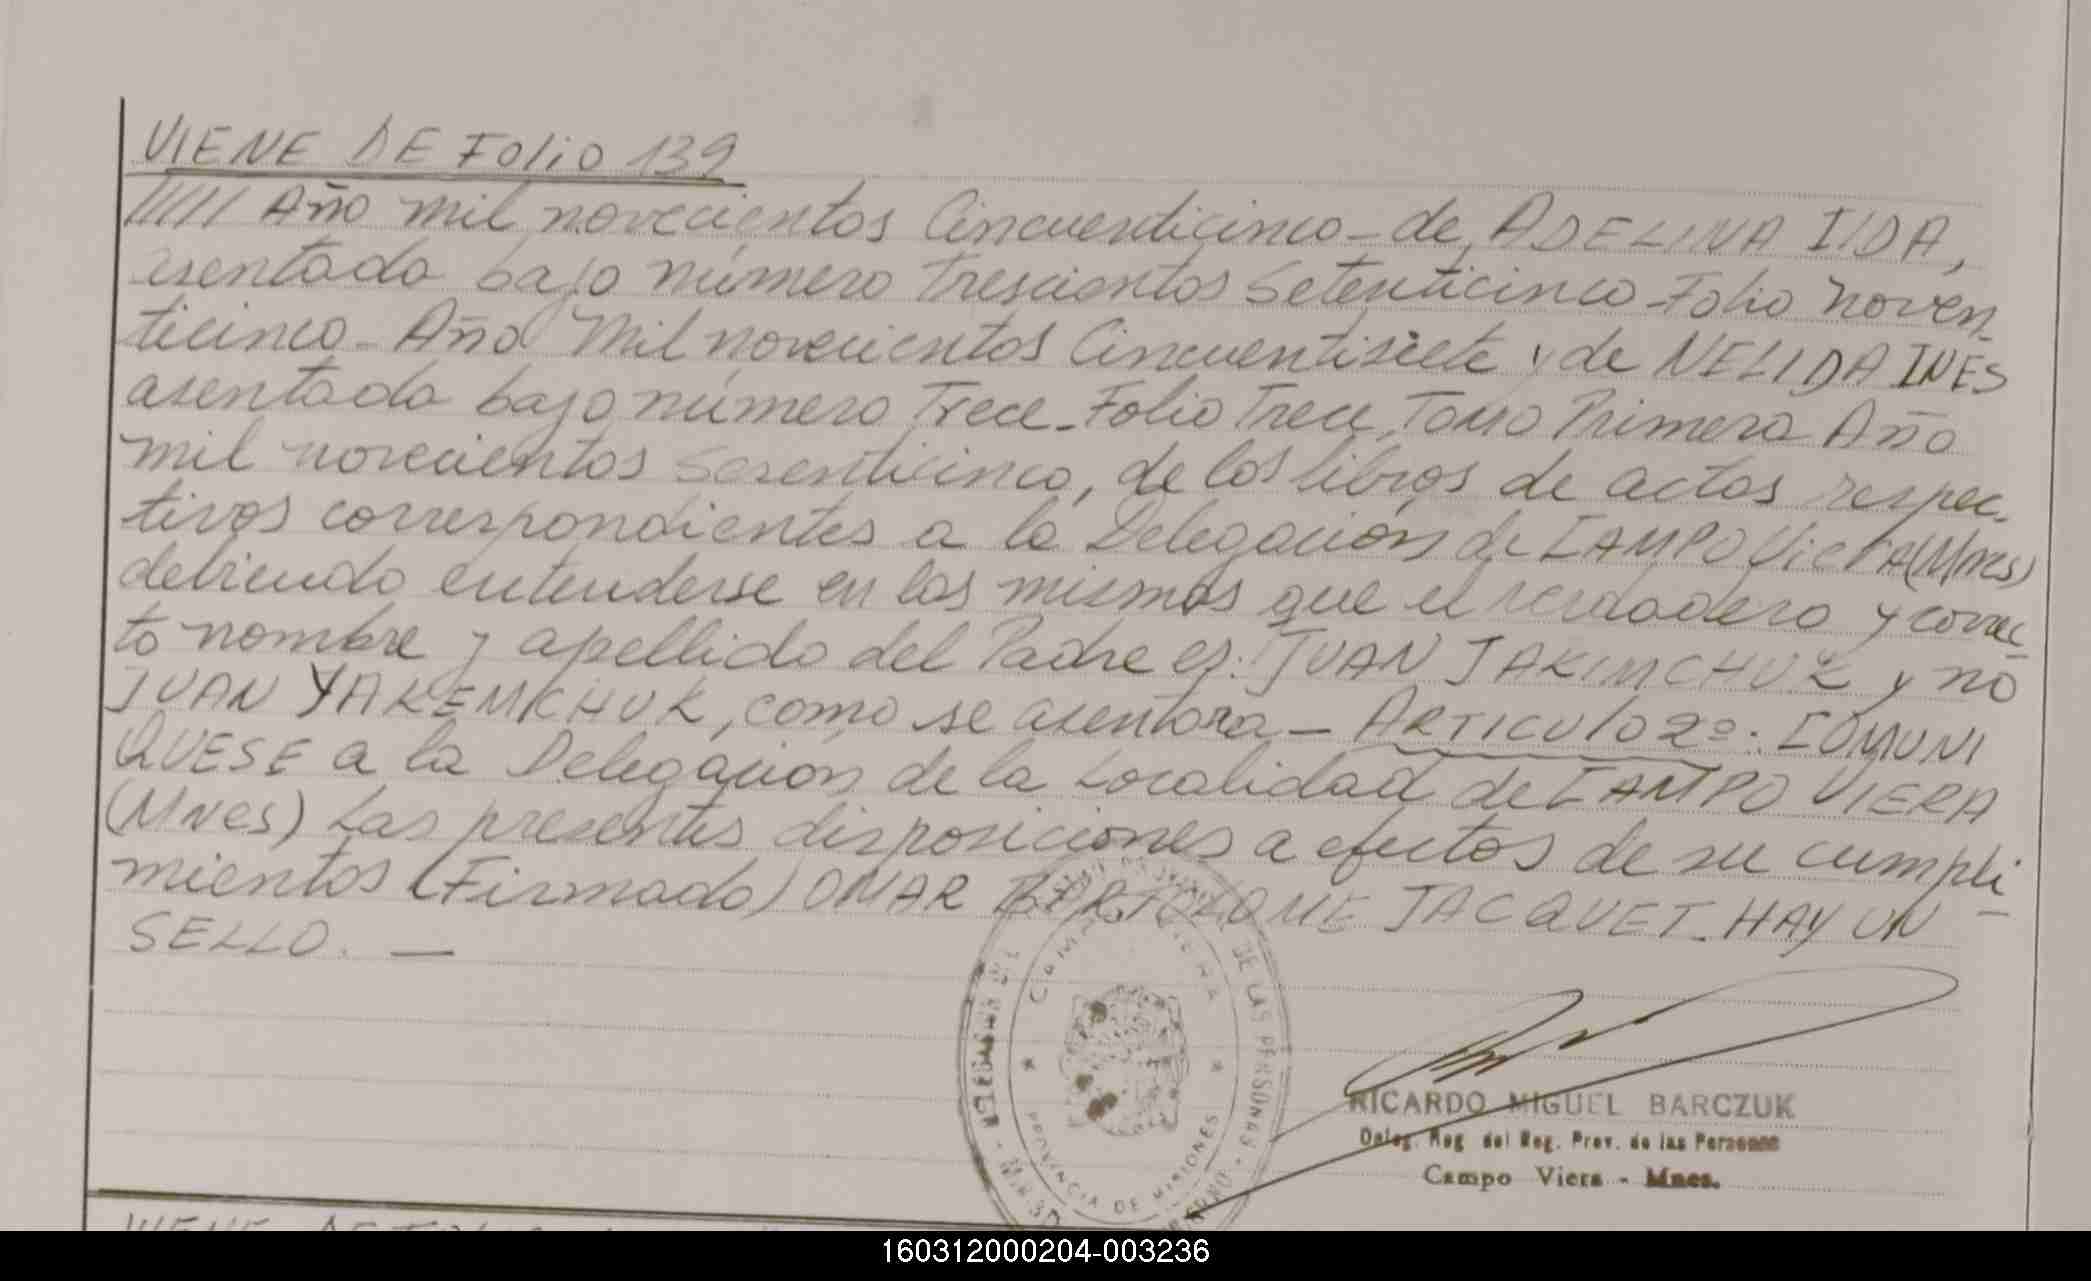 VIENE DE Folio 139
///// Año mil novecientos Cincuenticinco - de, ADELINA IIDA,
asentado bajo número Trescientos Setenticinco - Folio Noven_
ticinco - Año Mil novecientos Cincuentisiete y de NELIDA INES
asentado bajo número Trece - Folio Trece, Tomo Primero Año
mil novecientos Sesenticinco, de los libros de actos respec_
tivos correspondientes a la Delegación de CAMPO Viera (Mnes)
debiendo entenderse en los mismos que el verdadero y correc_
to nombre y apellido del Padre es: JUAN JAKIMCHUK y no
JUAN YAKEMKCHUK, como se asentora - ARTICULO 2º: COMUNI
QUESE a la Delegación de la Localidad de CAMPO VIERA
(Mnes) Las presentes disposiciones a efectos de su cumpli_
mientos (Firmado) OMAR BARTOLOME JACQUET - HAY UN
SELLO. -
DE LAS PERSONAS
PROVINCIA DE MISIONES
RICARDO MIGUEL BARCZUK
Deleg. Reg. del Reg. Prov. de las Personas
Campo Viera - Mnes.
160312000204-003236